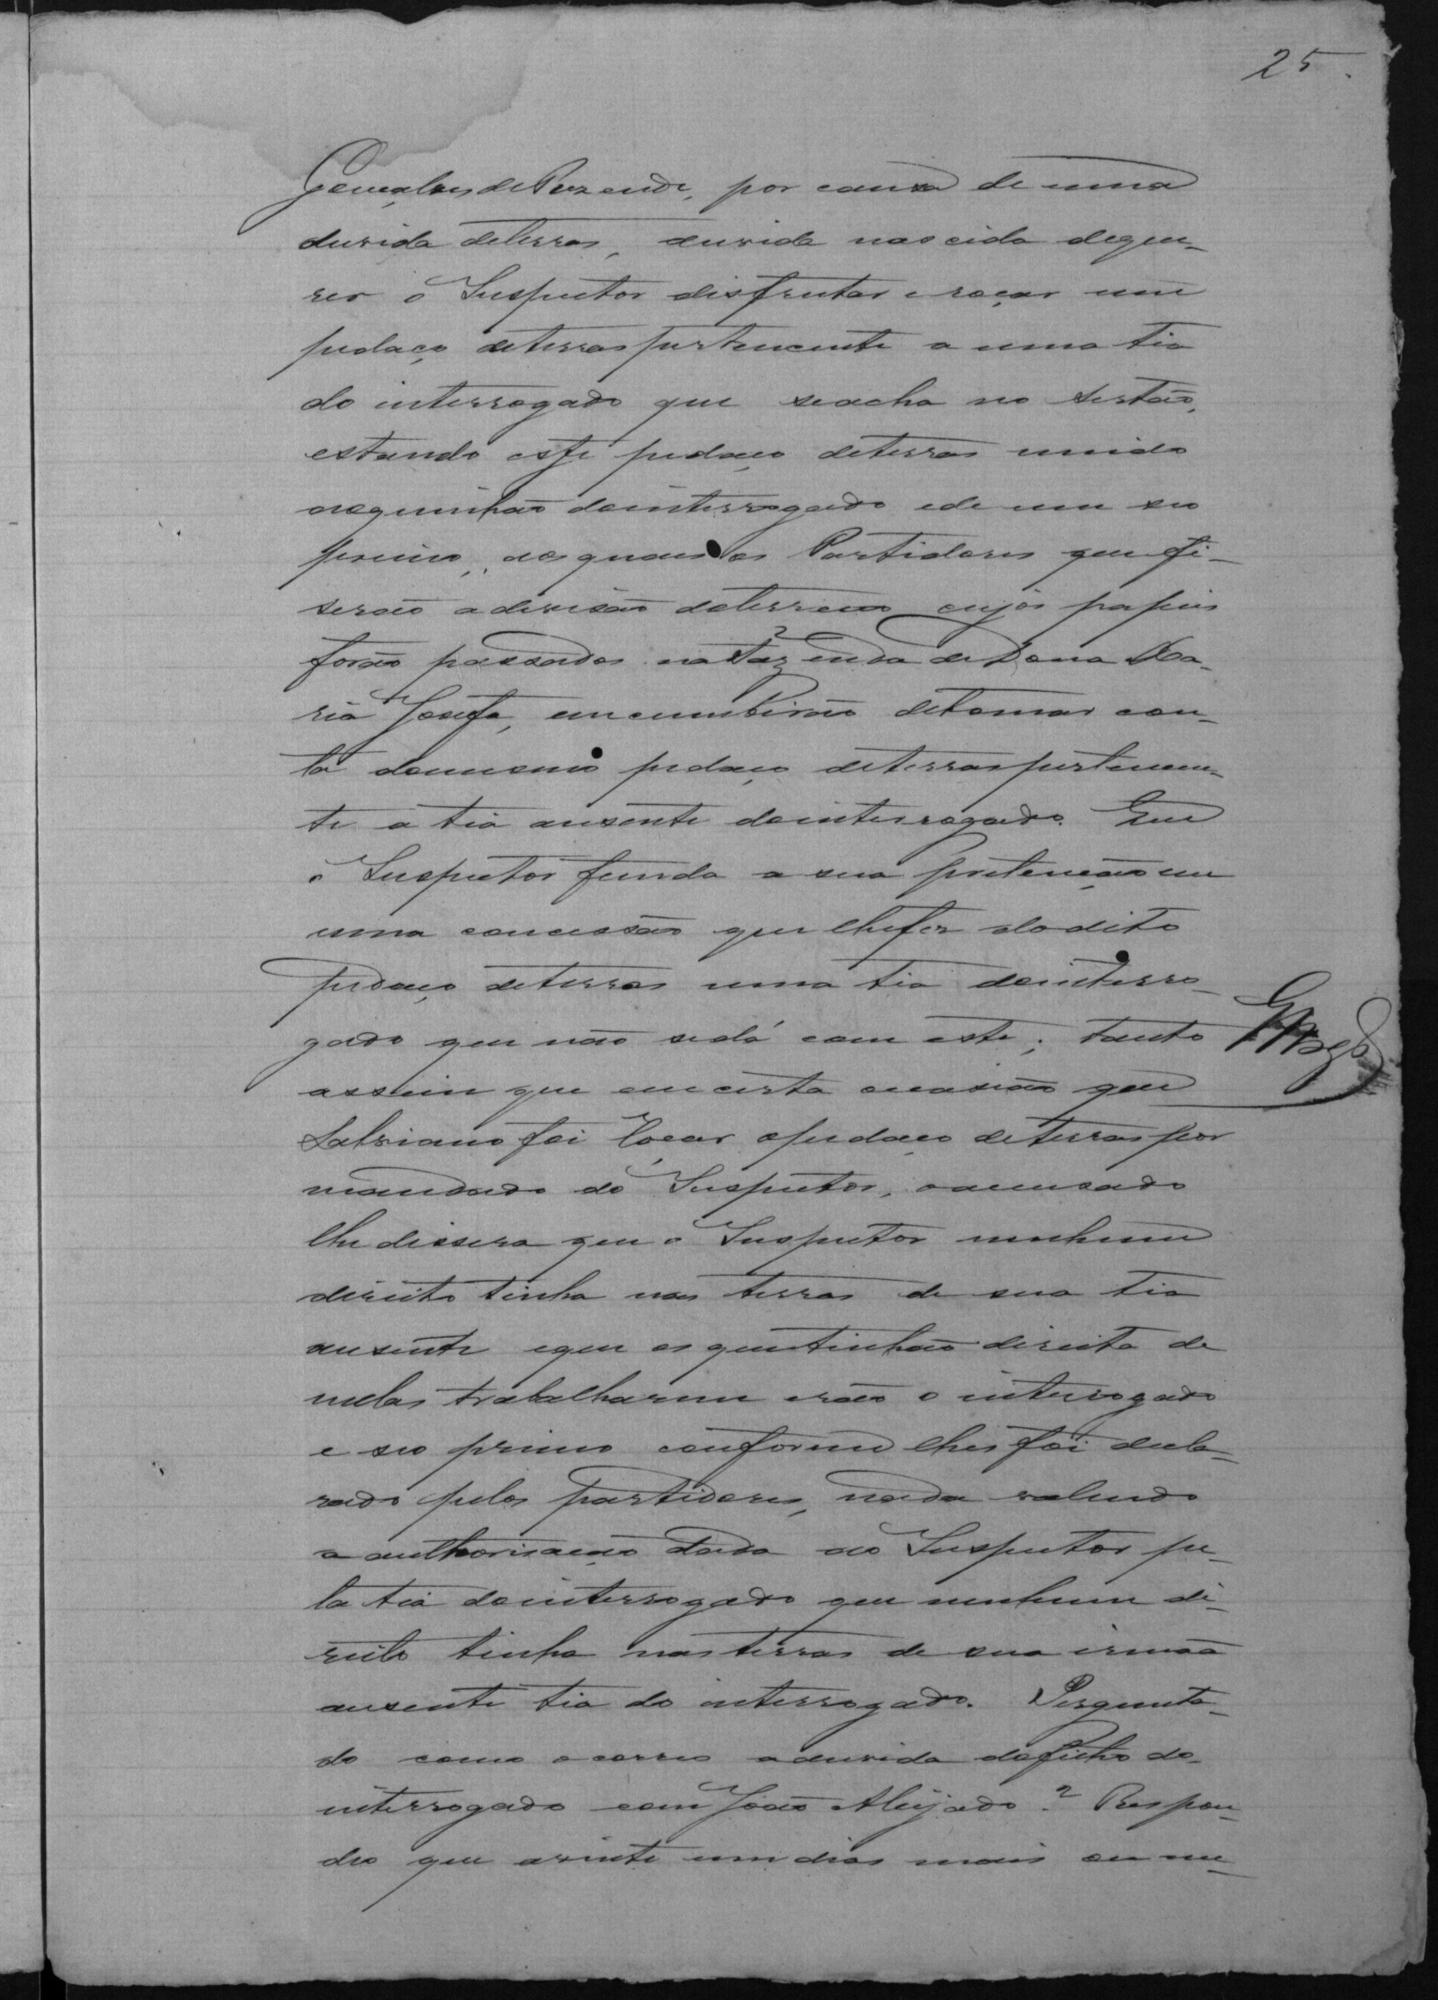 25.
Gonçalves de Rezende, por causa de uma
duvida deterras, duvida nascida deque-
rer o Inspector disfrutar e roçar um
pedaço deterras pertencente a uma tia
do interrogado que seacha no sertão,
estando este pedaço deterras unido
aoquinhão dointerrogado ede um seo
primo, aos quaes os Partidores que fi-
serão adivisão doterreno cujos papeis
forão passados na Fazenda de Dona Ma-
ria Josefa, encumbirão detomar con-
ta domesmo pedaço deterras pertencen-
te a tia ausente dointerrogado. Que
o Inspector funda a sua pretenção em
uma concessão que lhefez dodito
pedaço deterras uma tia dointerro-
gado que não sedá com este; tanto
assim que emcerta occasião que
Salviano foi roçar opedaço deterras por
mandado do Inspector, oaccusado
lhe dissera que o Inspector nenhum
direito tinha nas terras de sua tia
ausente eque os quetinhão direito de
nellas trabalharem erão o interrogado
e seo primo conforme lhes foi decla-
rado pelos partidores, nada valendo
a authorisação dada ao Inspector pe-
la tia dointerrogado que nenhum di-
reito tinha nas terras de sua irmaã
ausente tia do interrogado. Pergunta-
do como occorreo aduvida dofilho do
interrogado com João Aleijado? Respon-
deo que avinte um dias mais ou me-